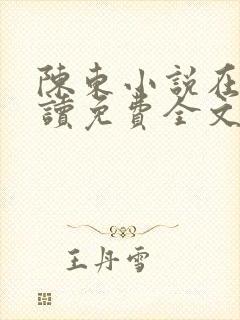 陳東小說在
讀免費全文
王丹雪